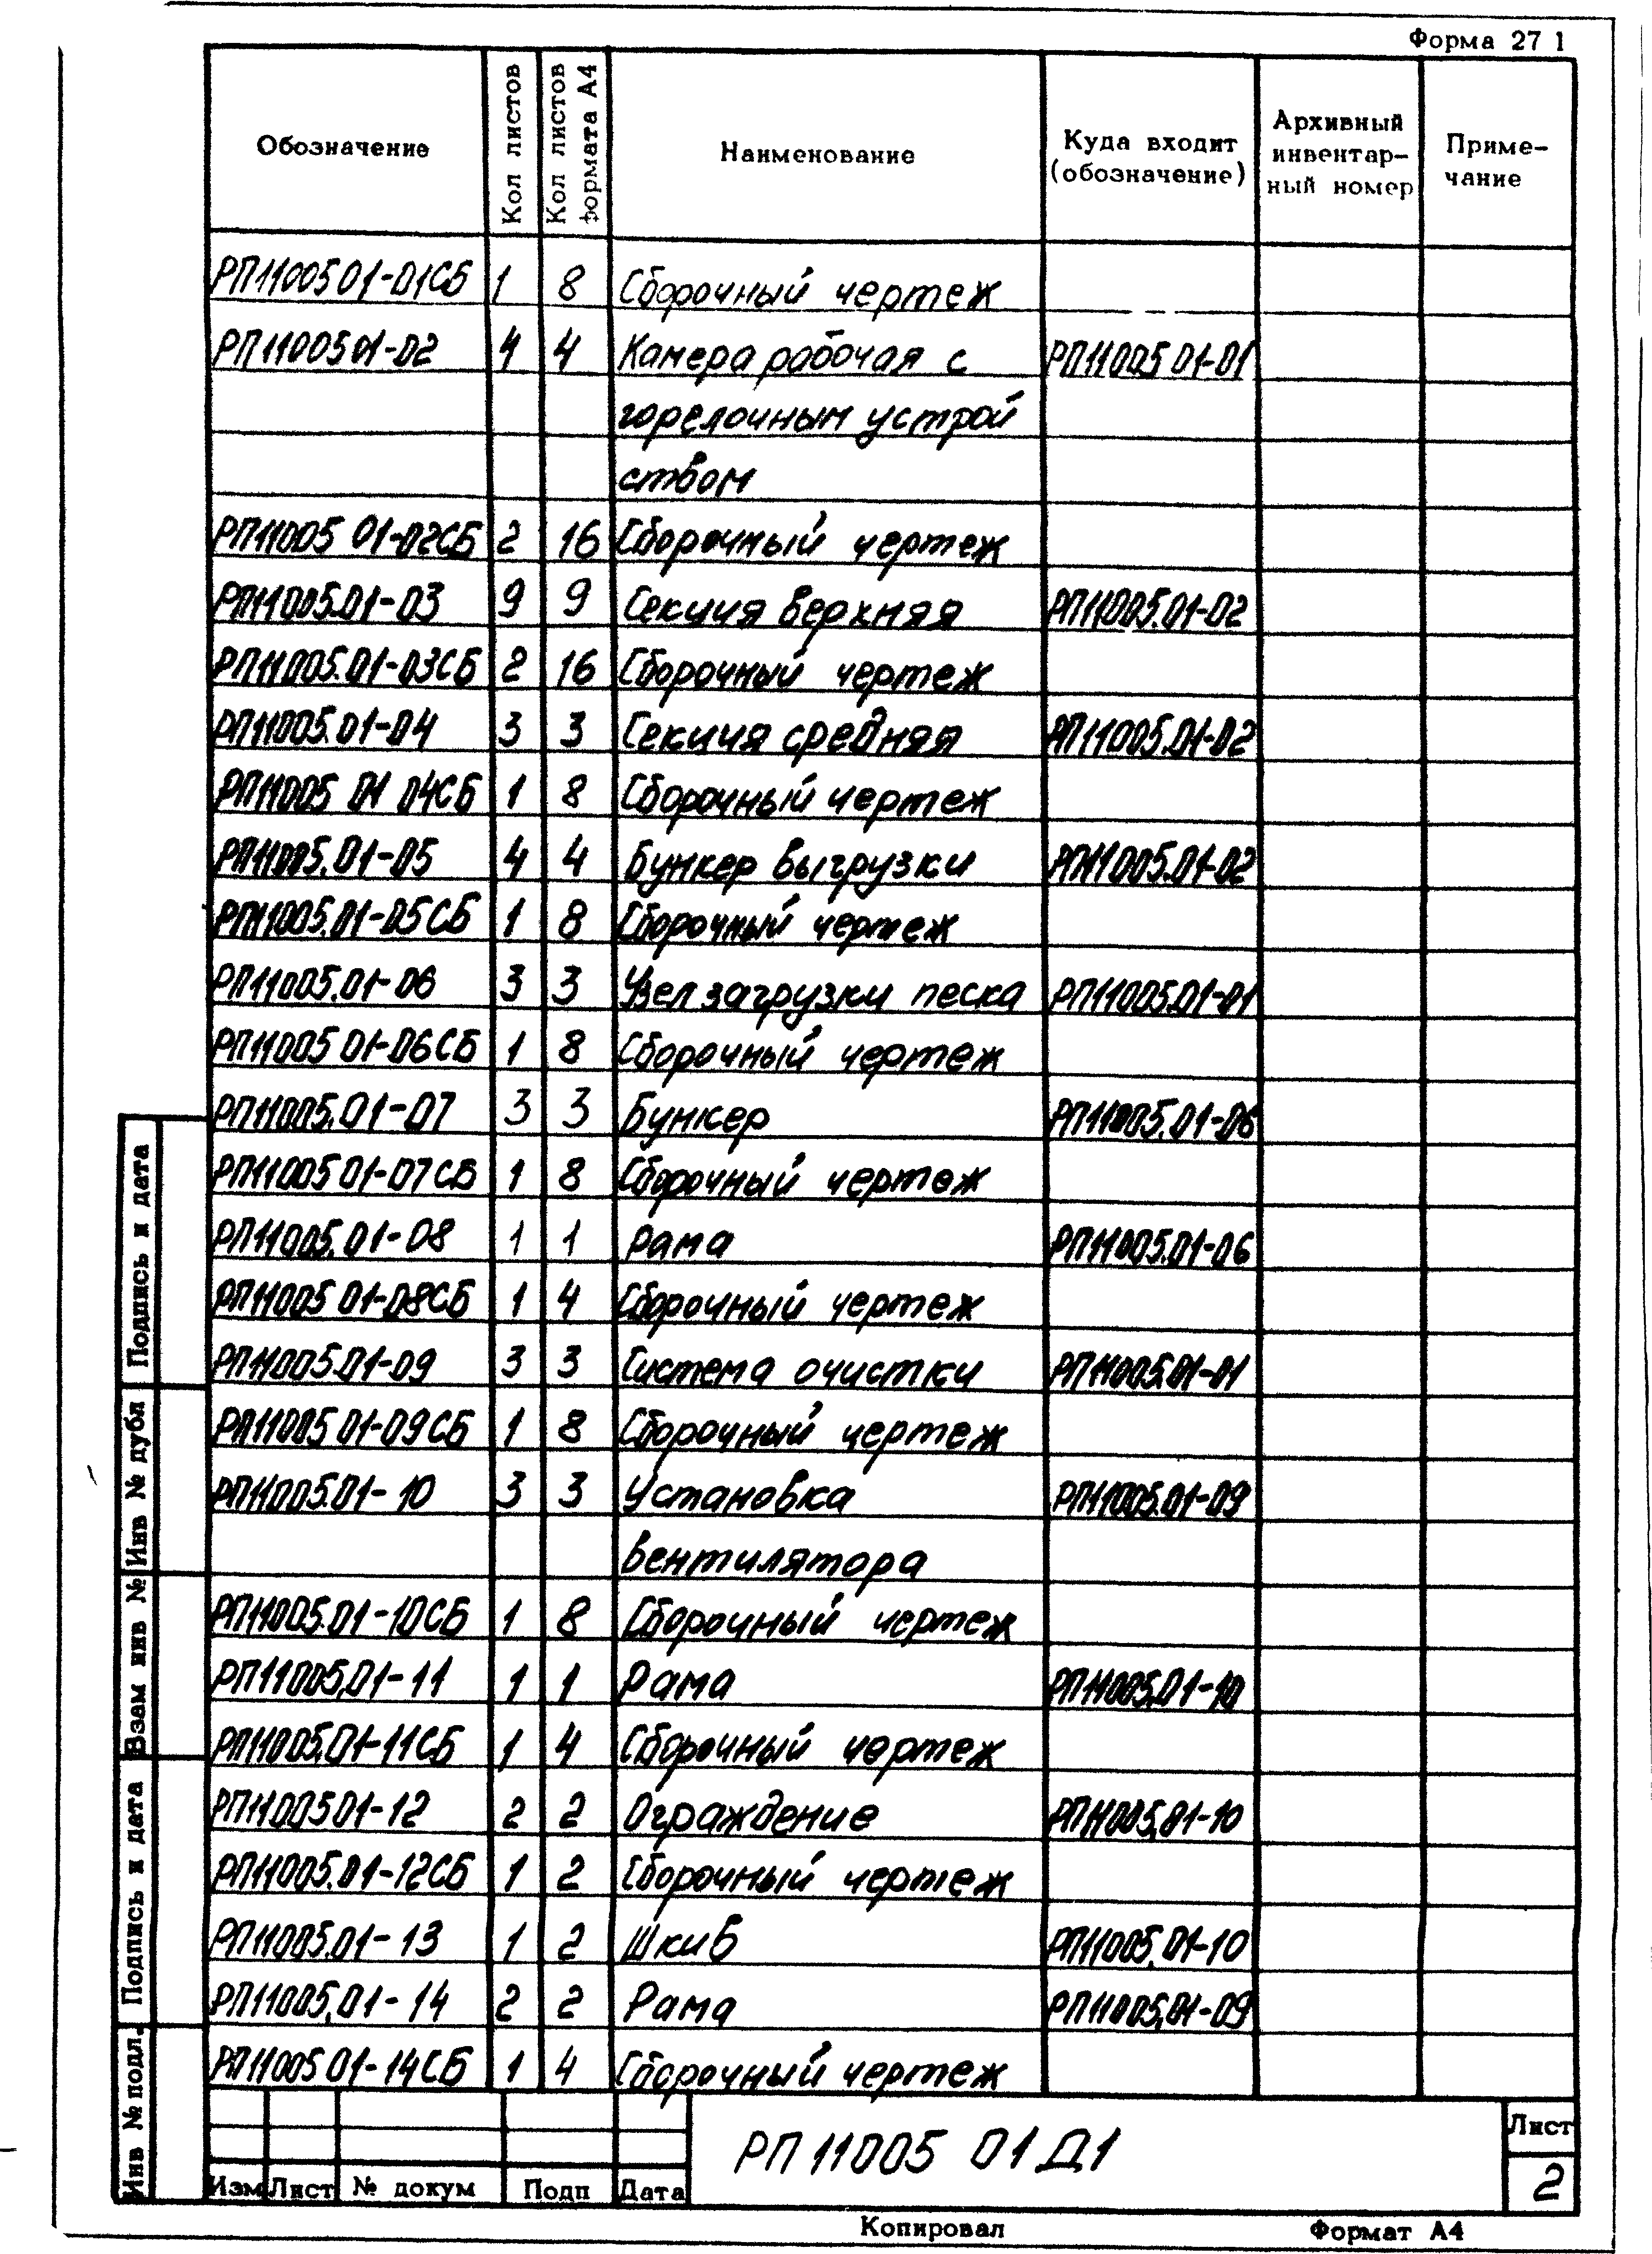 Форма 27 1
Обозначение Кол листов Кол листов формата А4 Наименование Куда входит (обозначение) Архивный инвентар- ный номер Приме- чание
РП11005 01-01СБ 1 8 Сборочный чертеж
РП11005 01-02 4 4 Камера рабочая с РП11005 01-01
горелочным устрой
ством
РП11005 01-02СБ 2 16 Сборочный чертеж
РП11005.01-03 9 9 Секция верхняя РП11005.01-02
РП11005.01-03СБ 2 16 Сборочный чертеж
РП11005.01-04 3 3 Секция средняя РП11005.01-02
РП11005 01 04СБ 1 8 Сборочный чертеж
РП11005.01-05 4 4 Бункер выгрузки РП11005.01-02
РП11005.01-05СБ 1 8 Сборочный чертеж
РП11005.01-06 3 3 Узел загрузки песка РП11005.01-01
РП11005 01-06СБ 1 8 Сборочный чертеж
РП11005.01-07 3 3 Бункер РП11005.01-06
РП11005 01-07СБ 1 8 Сборочный чертеж
РП11005.01-08 1 1 Рама РП11005.01-06
РП11005 01-08СБ 1 4 Сборочный чертеж
РП11005.01-09 3 3 Система очистки РП11005.01-01
РП11005 01-09СБ 1 8 Сборочный чертеж
РП11005.01-10 3 3 Установка РП11005.01-09
вентилятора
РП11005.01-10СБ 1 8 Сборочный чертеж
РП11005.01-11 1 1 Рама РП11005.01-10
РП11005.01-11СБ 1 4 Сборочный чертеж
РП11005 01-12 2 2 Ограждение РП11005.01-10
РП11005.01-12СБ 1 2 Сборочный чертеж
РП11005.01-13 1 2 Шкив РП11005.01-10
РП11005.01-14 2 2 Рама РП11005.01-09
РП11005 01-14СБ 1 4 Сборочный чертеж
Подпись и дата
Инв № дубл
Взам инв №
Подпись и дата
Инв № подл.
Изм Лист № докум Подп Дата
РП 11005 01 Д1
Лист
2
Копировал Формат А4